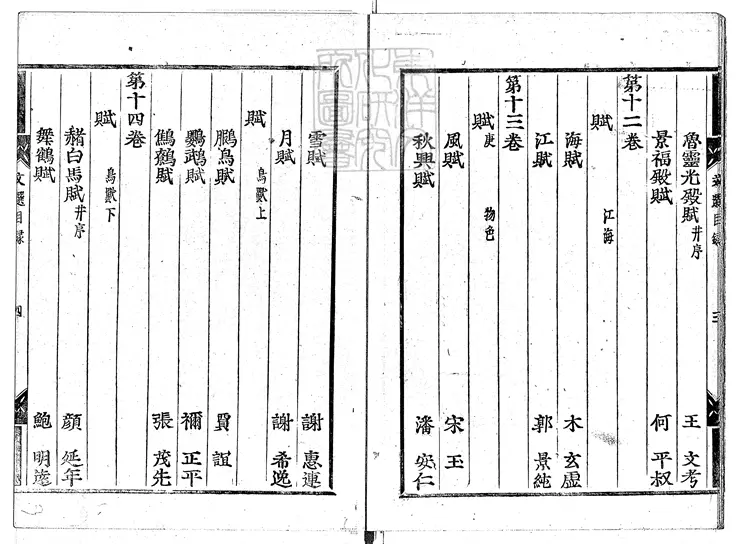 魯靈光殿賦 并序 王文考
景福殿賦 何平叔
第十二卷
賦 江海
海賦 木玄虛
江賦 郭景純
第十三卷
賦庚 物色
風賦 宋玉
秋興賦 潘安仁
文選目錄 三
雪賦 謝惠連
月賦 謝希逸
賦 鳥獸上
鵬鳥賦 賈誼
鸚鵡賦 禰正平
鷦鷯賦 張茂先
第十四卷
賦 鳥獸下
赭白馬賦 并序 顏延年
舞鶴賦 鮑明遠
文選目錄 四